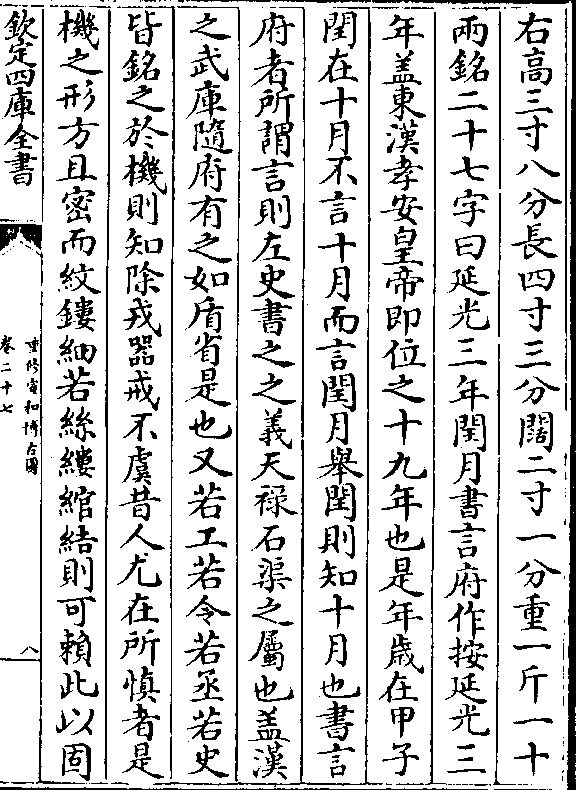 右高三寸八分長四寸三分闊二寸一分重一斤一十
兩銘二十七字曰延光三年閏月書言府作按延光三
年盖東漢孝安皇帝即位之十九年也是年歳在甲子
閏在十月不言十月而言閏月舉閏則知十月也書言
府者所謂言則左史書之之義天禄石渠之屬也盖漢
之武庫隨府有之如盾省是也又若工若令若丞若史
皆銘之於機則知除戎器戒不虞昔人尤在所慎者是
機之形方且密而紋鏤細若絲縷綰結則可賴此以固
欽定四庫全書
重修宣和博古圖
卷二十七
八